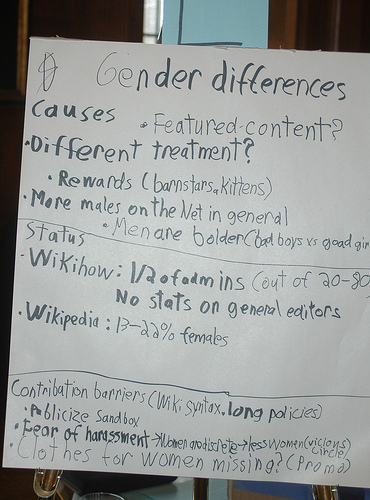 Gender differences
Causes
• Featured-content?
• Different treatment?
• Rewards (barnstars, kittens)
• More males on the Net in general
• Men are bolder (bad boys vs good gir
Status
- Wikihow: 1/2 of admins (out of 20-80
No stats on general editors
• Wikipedia: 13-22% females
Contribution barriers (Wiki syntax, long policies)
• Publicize sandbox
• Fear of harassment → Women are discrete → less women (vicious circle)
• Clothes for women missing? (Promo)